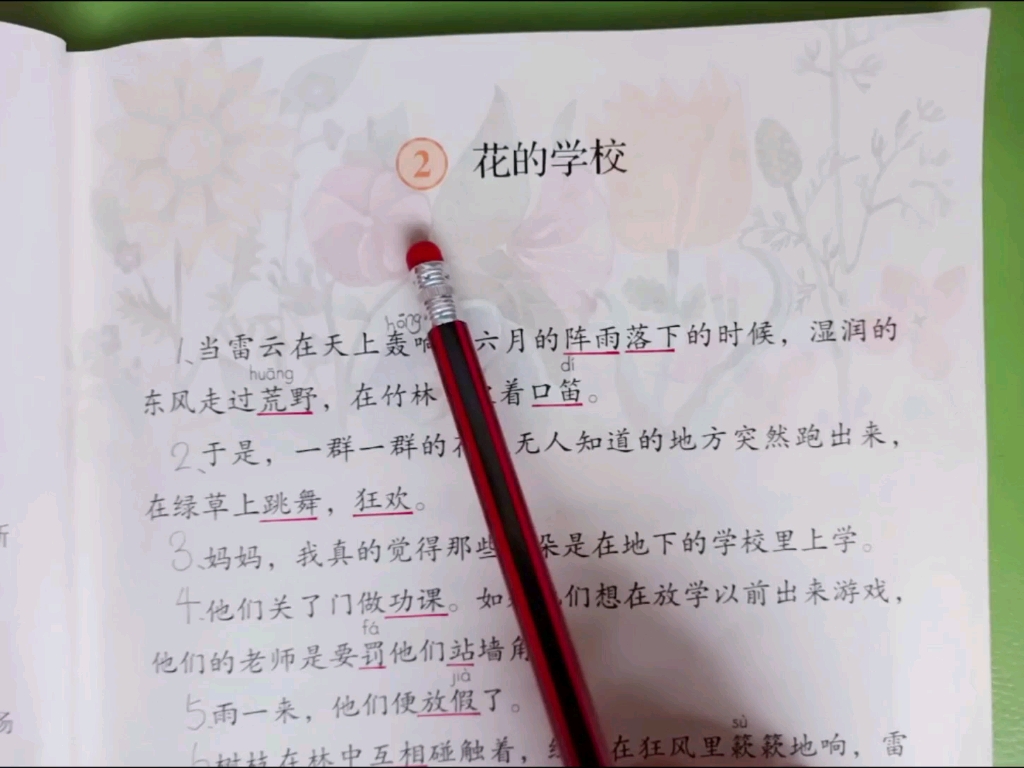 2 花的学校
hōng
1、当雷云在天上轰响 六月的阵雨落下的时候，湿润的
huāng dí
东风走过荒野，在竹林 着口笛。
2、于是，一群一群的花 无人知道的地方突然跑出来，
在绿草上跳舞，狂欢。
3、妈妈，我真的觉得那些 朵是在地下的学校里上学。
4、他们关了门做功课。如 他们想在放学以前出来游戏，
fá
他们的老师是要罚他们站墙角
jià
5、雨一来，他们便放假了。
sù
6、树枝在林中互相碰触着， 在狂风里簌簌地响，雷